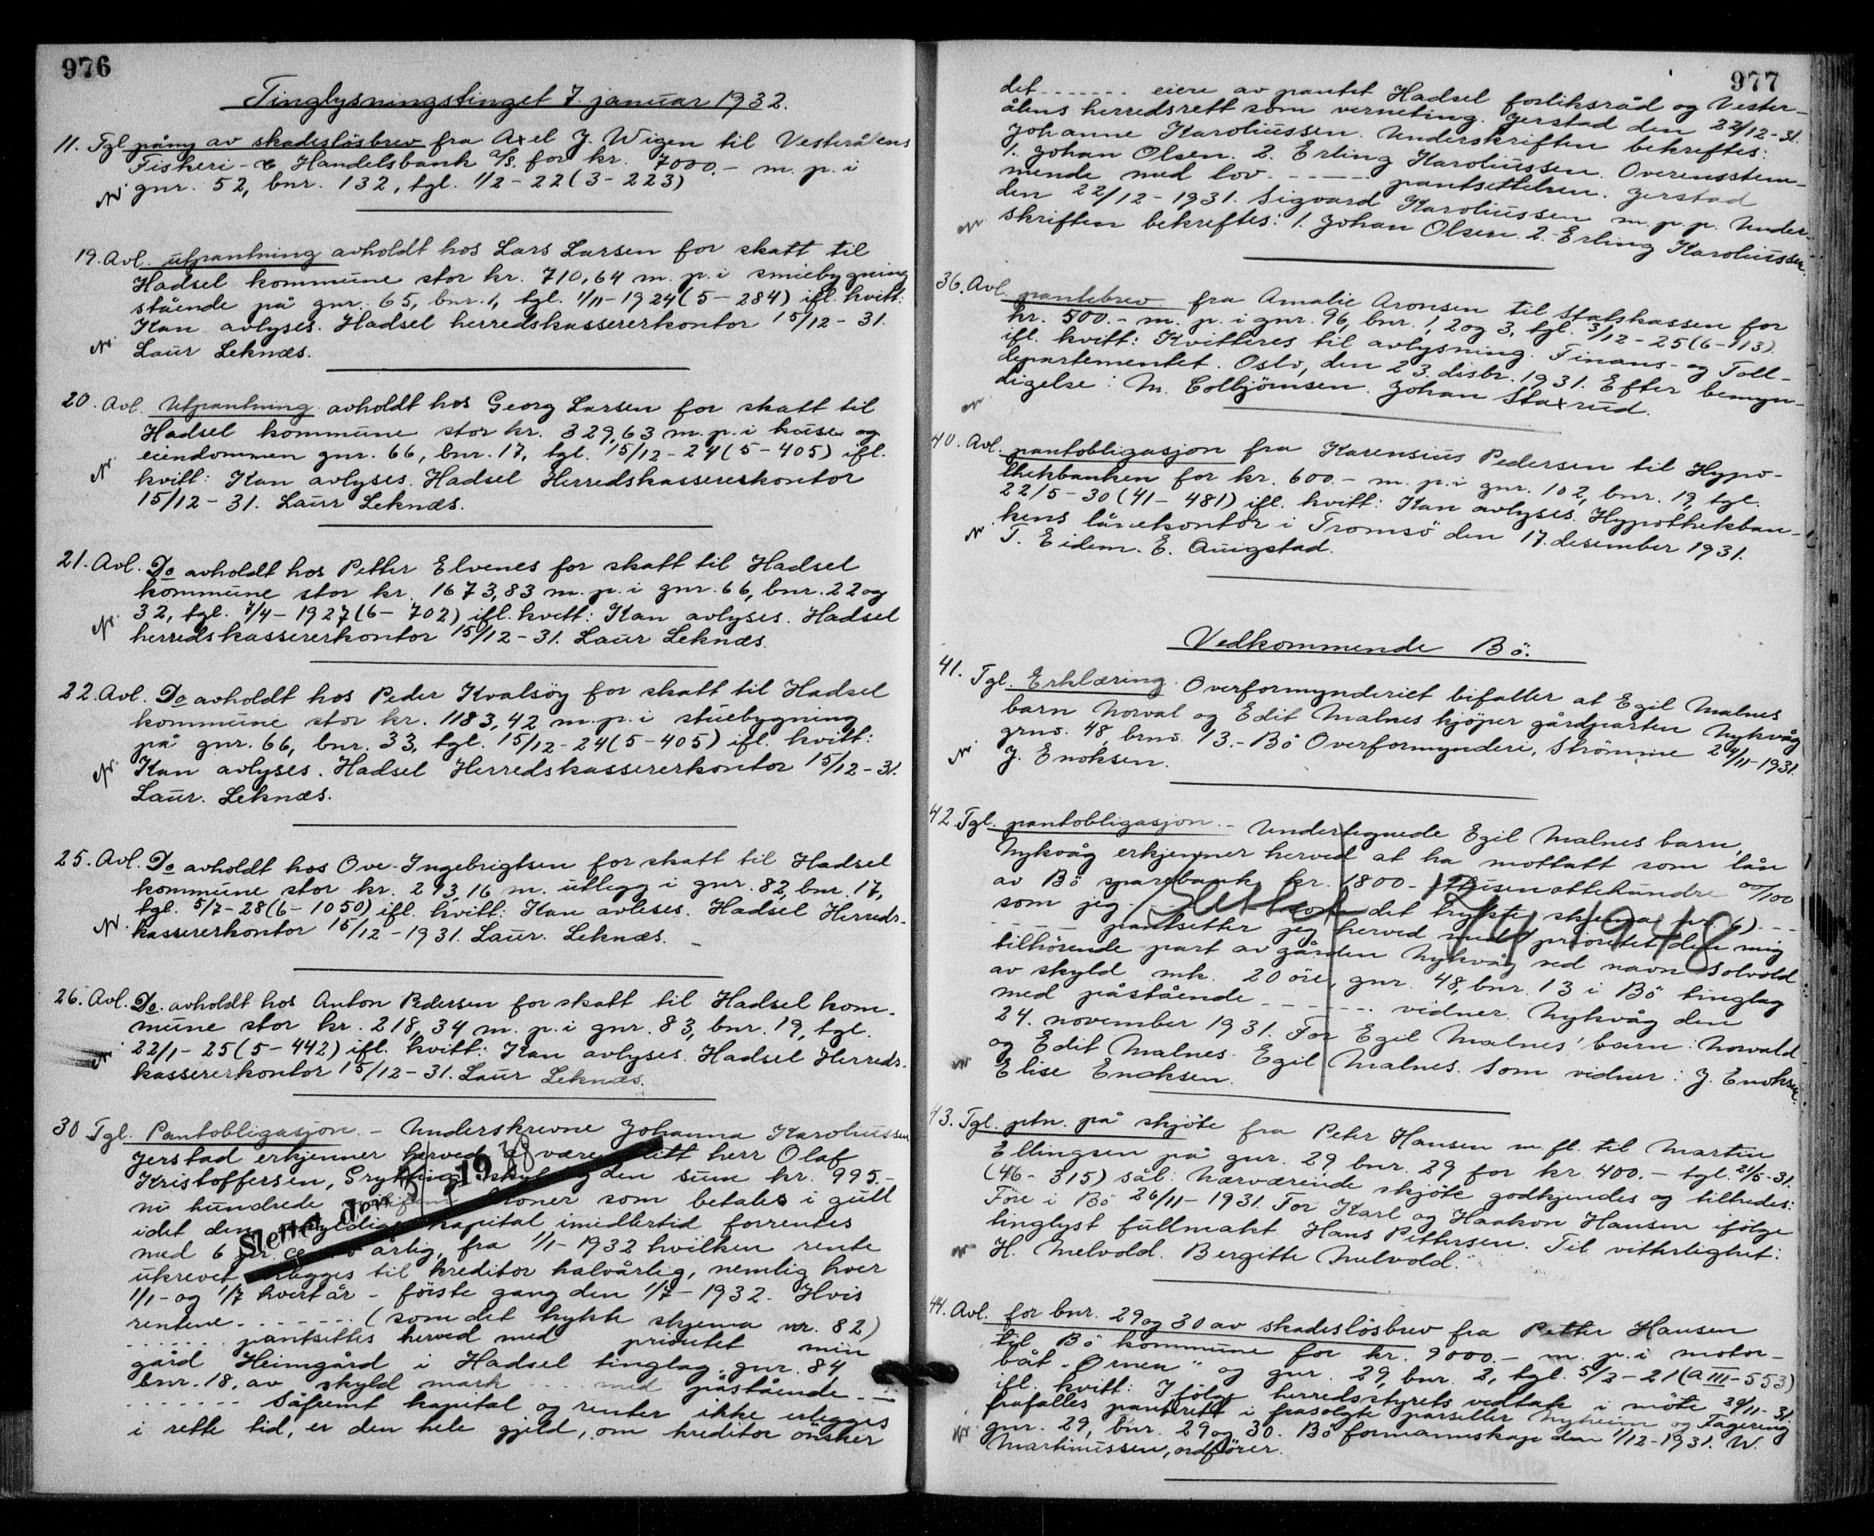 976
Tinglysningstinget 7. januar 1932.
11. Tgl. påny av skadesløsbrev fra Axel J. Wigen til Vesterålens
Fiskeri- & Handelsbank A/S. for kr. 7000.- m. p. i
gnr. 52, bnr. 132, tgl. 1/2-22 (3-223)
19. Avl. utpantning avholdt hos Lars Larsen for skatt til
Hadsel kommune stor kr. 710,64 m. p. i smiebygning
stående på gnr. 65, bnr. 1, tgl. 1/11-1924 (5-284) ifl. kvitt:
Kan avlyses. Hadsel herredskassererkontor 15/12-31.
Laur Leknæs.
20. Avl. Utpantning avholdt hos Georg Larsen for skatt til
Hadsel kommune stor kr. 329,63 m. p. i huse og
eiendommen gnr. 66, bnr. 17, tgl. 15/12-24 (5-405) ifl.
kvitt: Kan avlyses. Hadsel Herredskassererkontor
15/12-31. Laur Leknæs.
21. Avl. Do avholdt hos Petter Elvenes for skatt til Hadsel
kommune stor kr. 1673,83 m. p. i gnr. 66, bnr. 22 og
32, tgl. 7/4-1927 (6-702) ifl. kvitt: Kan avlyses. Hadsel
herredskassererkontor 15/12-31. Laur Leknæs.
22. Avl. Do avholdt hos Peder Kvalsøy for skatt til Hadsel
kommune stor kr. 1183,42 m. p. i stuebygning
på gnr. 66, bnr. 33, tgl. 15/12-24 (5-405) ifl. kvitt:
Kan avlyses. Hadsel Herredskassererkontor 15/12-31.
Laur. Leknæs.
25. Avl. Do avholdt hos Ove Ingebrigtsen for skatt til Hadsel
kommune stor kr. 293,16 m. utlegg i gnr. 82, bnr. 17,
tgl. 5/7-28 (6-1050) ifl. kvitt: Kan avleses. Hadsel Herreds-
kassererkontor 15/12-1931. Laur. Leknæs.
26. Avl. Do. avholdt hos Anton Pedersen for skatt til Hadsel kom-
mune stor kr. 218,34 m. p. i gnr. 83, bnr. 19, tgl.
22/1-25 (5-442) ifl. kvitt: Kan avlyses. Hadsel Herreds-
kassererkontor 15/12-31. Laur Leknæs.
30 Tgl. Pantobligasjon. - Underskrevne Johanna Karoliussen
Jerstad erkjenner herved å være blitt herr Olaf
Kristoffersen, Grytting skyldig den sum kr. 995.-
ni hundrede kroner som betales i gull
idet den skyldige kapital imidlertid forrentes
med 6 pr. cento årlig, fra 1/1-1932 hvilken rente
ukrevet erlegges til kreditor halvårlig, nemlig hver
1/1- og 1/7 hvert år - første gang den 1/7-1932. Hvis
rentene - - - - - - - (som det trykte skjema nr. 82)
- - - - - - pantsettes herved med prioritet min
gård Heimgård i Hadsel tinglag, gnr. 84,
bnr. 18, av skyld mark - - - med påstående - -
- - - - - - - Såfremt kapital og renter ikke erlegges
i rette tid, er den hele gjeld, om kreditor ønsker
Slettet den 19 38
977
det - - - - - - - eiere av pantet Hadsel forliksråd og Vester-
ålens herredsrett som verneting. Jerstad den 22/12-31.
Johanne Karoliussen. Underskriften bekreftes:
1. Johan Olsen. 2. Erling Karoliussen. Overensstem-
mende med lov - - - - - pantsettelsen. Jerstad
den 22/12-1931. Sigvard Karoliussen m. p. p. Under-
skriften bekreftes: 1. Johan Olsen. 2. Erling Karoliussen.
36. Avl. pantebrev fra Amalie Aronsen til Statskassen for
kr. 500.- m. p. i gnr. 96, bnr. 1, 2 og 3, tgl. 3/12-25 (6-113)
ifl. kvitt: Kvitteres til avlysning. Finans- og Toll-
departementet. Oslo, den 23. desbr. 1931. Efter bemyn-
digelse: M. Colbjørnsen. Johan Staxrud.
40. Avl. pantobligasjon fra Karensius Pedersen til Hypo-
thekbanken for kr. 600.- m. p. i gnr. 102, bnr. 19, tgl.
22/5-30 (41-481) ifl. kvitt: Kan avlyses. Hypothekban-
kens lånekontor i Tromsø den 17. desember 1931.
T. Eidem. E. Auigstad.
Vedkommende Bø.
41. Tgl. Erklæring. Overformynderiet bifaller at Egil Malnes
barn Norval og Edit Malnes kjøper gårdparten Nykvåg
grno. 48 brno. 13. - Bø Overformynderi, Strømme 24/11-1931.
J. Enoksen.
42 Tgl. pantobligasjon. - Undertegnede Egil Malnes barn,
Nykvåg erkjenner herved at ha mottatt som lån
av Bø sparebank kr. 1800.- ettusenottehundre 00/100
som jeg - - - - - (som det trykte skjema nr. 6) - - -
- - - - - pantsetter jeg herved med prioritet den mig
tilhørende part av gården Nykvåg ved navn Solvold
av skyld mk. 20 øre, gnr. 48, bnr. 13 i Bø tinglag
med påstående - - - - - - vidner. Nykvåg den
24. november 1931. For Egil Malnes' barn: Norvald
og Edit Malnes. Egil Malnes. Som vidner: J. Enoksen.
Elise Enoksen.
Slettet 1948
43. Tgl. ptn. på skjøte fra Peter Hansen m. fl. til Martin
Ellingsen på gnr. 29 bnr. 29 for kr. 400.- tgl. 21/5-31.
(46-315) sål: Nærværende skjøte godkjendes og tiltredes:
Føre i Bø 26/11-1931. For Karl og Haakon Hansen ifølge
tinglyst fullmakt Hans Pettersen. Til vitterlighet:
H. Melvold. Bergitte Melvold.
44. Avl. for bnr. 29 og 30 av skadesløsbrev fra Petter Hansen
til Bø kommune for kr. 9000.- m. p. i motor-
båt "Ørnen" og gnr. 29, bnr. 2, tgl. 5/2-21 (A III-553)
ifl. kvitt: Ifølge herredsstyrets vedtak i møte 30/11-31.
frafalles panterett i frasolgte parseller Nyheim og Fagereng
gnr. 29, bnr. 29 og 30. Bø formannskap den 1/12-1931. W.
Martinussen, ordfører.